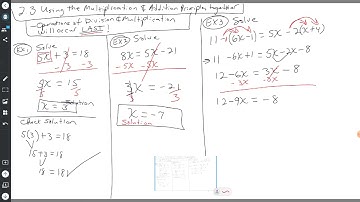 2.3 Using the Multiplication & Addition Principles Together
Operations of Division & Multiplication
will occur LAST!
Ex1 Solve
5x + 3 = 18
- 3 - 3
5x = 15
5 5
x = 3 Solution
Check Solution
5(3) + 3 = 18
15 + 3 = 18
18 = 18 ✓
Ex2 Solve
8x = 5x - 21
-5x -5x
3x = -21
3 3
x = -7
Solution
Ex3 Solve
11 - 1(6x - 1) = 5x - 2(x + 4)
11 - 6x + 1 = 5x - 2x - 8
12 - 6x = 3x - 8
-3x -3x
12 - 9x = -8